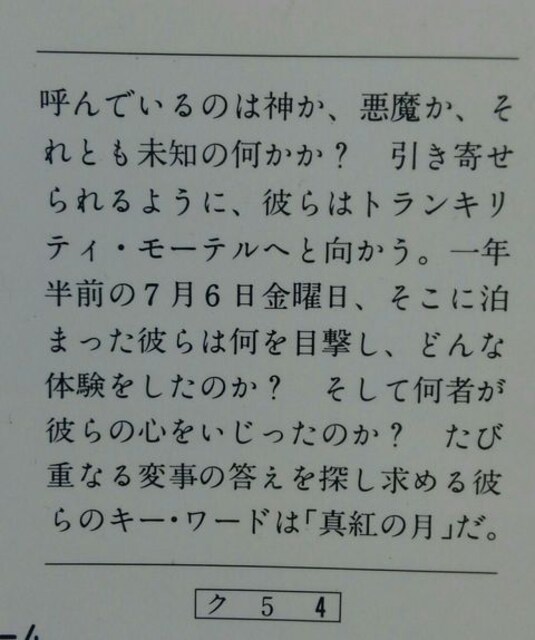 呼んでいるのは神か、悪魔か、そ
れとも未知の何かか？　引き寄せ
られるように、彼らはトランキリ
ティ・モーテルへと向かう。一年
半前の7月6日金曜日、そこに泊
まった彼らは何を目撃し、どんな
体験をしたのか？　そして何者が
彼らの心をいじったのか？　たび
重なる変事の答えを探し求める彼
らのキー・ワードは「真紅の月」だ。
ク 5 4